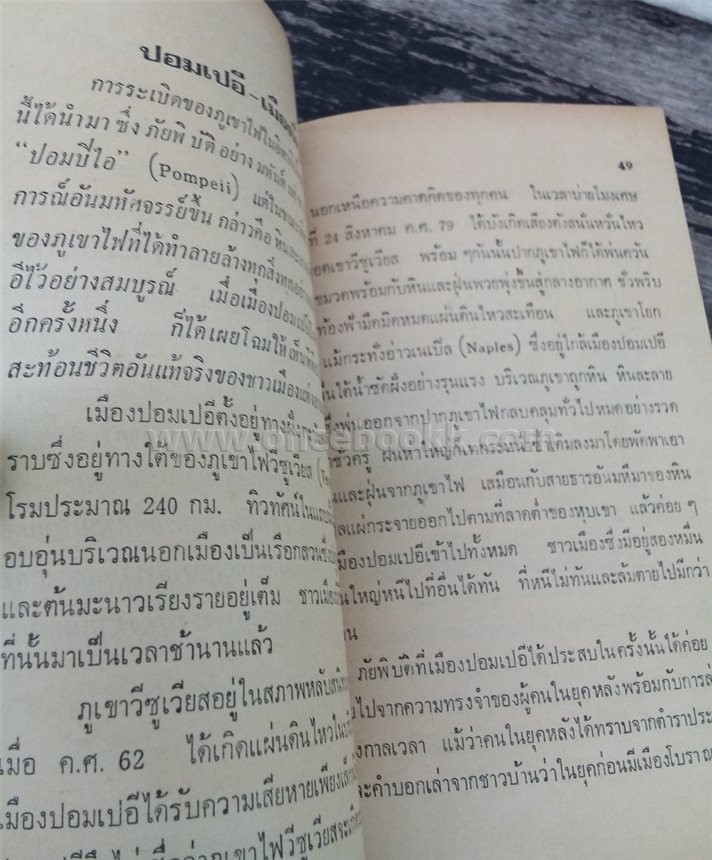 ปอมเปอี-เมือง
การระเบิดของภูเขาไฟในอิตาลี
นี้ได้นำมา ซึ่ง ภัยพิ บัติ อย่าง มหันต์
“ปอมปีไอ” (Pompeii) แต่ในขณะ
การณ์อันมหัศจรรย์ขึ้น กล่าวคือ หินละลาย
ของภูเขาไฟที่ได้ทำลายล้างทุกสิ่งทุกอย่าง
อีไว้อย่างสมบูรณ์ เมื่อเมืองปอมเปอี
อีกครั้งหนึ่ง ก็ได้เผยโฉมให้เห็น
สะท้อนชีวิตอันแท้จริงของชาวเมือง
เมืองปอมเปอีตั้งอยู่ทาง
ราบซึ่งอยู่ทางใต้ของภูเขาไฟวีซูเวียส
โรมประมาณ 240 กม. ทิวทัศน์ใน
อบอุ่นบริเวณนอกเมืองเป็นเรือกสวน
และต้นมะนาวเรียงรายอยู่เต็ม ชาวเมือง
ที่นั้นมาเป็นเวลาช้านานแล้ว
ภูเขาวีซูเวียสอยู่ในสภาพหลับ
เมื่อ ค.ศ. 62 ได้เกิดแผ่นดินไหว
เมืองปอมเปอีได้รับความเสียหายเพียง
ว่าภูเขาไฟวีซูเวียสจะ
49
นอกเหนือความคาดคิดของทุกคน ในเวลาบ่ายโมงเศษ
ที่ 24 สิงหาคม ค.ศ. 79 ได้บังเกิดเสียงดังสนั่นหวั่นไหว
อดเขาวีซูเวียส พร้อม ๆกันนั้นปากภูเขาไฟก็ได้พ่นควัน
ขมวดพร้อมกับหินและฝุ่นพวยพุ่งขึ้นสู่กลางอากาศ ชั่วพริบ
ท้องฟ้ามืดมิดหมดแผ่นดินไหวสะเทือน และภูเขาโยก
แม้กระทั่งอ่าวเนเปิ้ล (Naples) ซึ่งอยู่ใกล้เมืองปอมเปอี
ได้น้ำซัดฝั่งอย่างรุนแรง บริเวณภูเขาถูกหิน หินละลาย
ซึ่งพ่นออกจากปากภูเขาไฟกลบคลุมทั่วไปหมดอย่างรวด
ชั่วครู่ ฝนห่าใหญ่ก็เทกระหน่ำซ้ำเติมลงมาโดยพัดพาเอา
และฝุ่นจากภูเขาไฟ เสมือนกับสายธารอันมหึมาของหิน
ลแผ่กระจายออกไปตามที่ลาดต่ำของหุบเขา แล้วค่อย ๆ
เมืองปอมเปอีเข้าไปทั้งหมด ชาวเมืองซึ่งมีอยู่สองหมื่น
นใหญ่หนีไปที่อื่นได้ทัน ที่หนีไม่ทันและล้มตายไปมีกว่า
น
ภัยพิบัติที่เมืองปอมเปอีได้ประสบในครั้งนั้นได้ค่อย
ไปจากความทรงจำของผู้คนในยุคหลังพร้อมกับการล่
งกาลเวลา แม้ว่าคนในยุคหลังได้ทราบจากตำราประ
ละคำบอกเล่าจากชาวบ้านว่าในยุคก่อนมีเมืองโบราณ
www.oncebook1.com